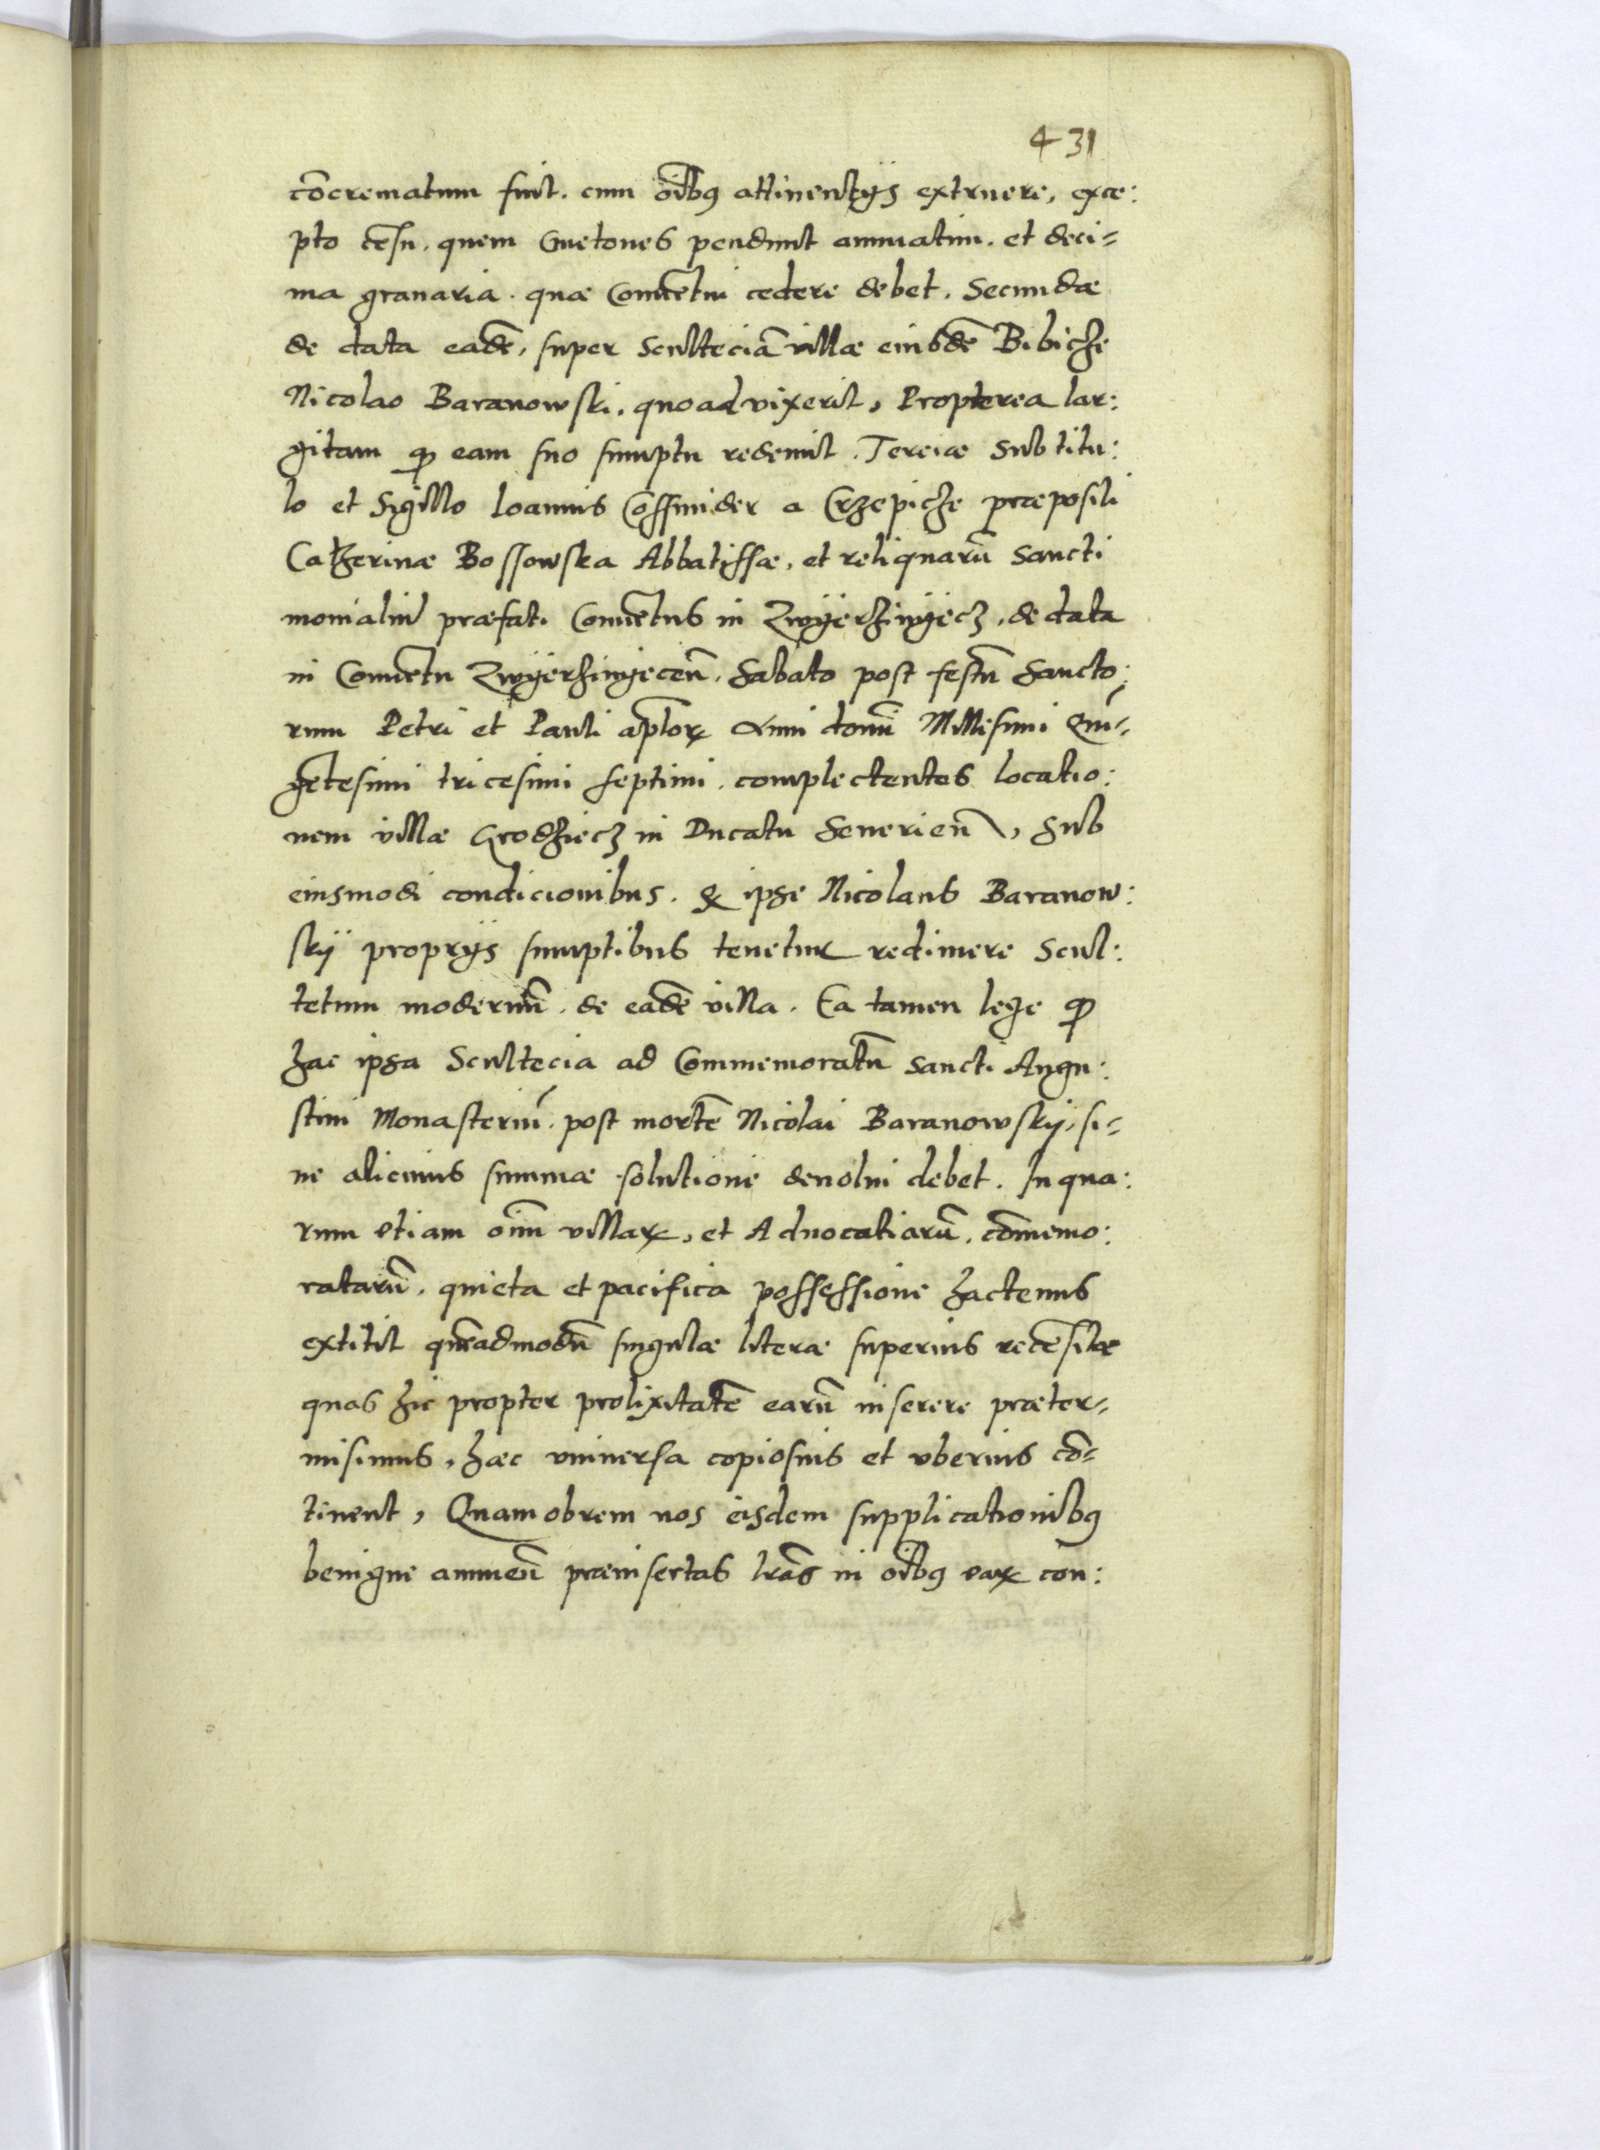 431
cõcrematum fuit. cum oĩbꝰ attinentijs extruere, exce:
pto cẽsu, quem Cmetones pendunt annuatim. et deci=
ma granaria. quæ Conuẽtui cedere debet. Secundæ
de data eadẽ, super Scultecia villæ eiusdẽ Bibicze
Nicolao Baranowski, quoad vixerit, Propterea lar:
gitam ꝙ eam suo sumptu redemit. Terciæ Sub titu:
lo et Sigillo Ioannis Cossmider a Crzepicze præpositi
Catherinæ Bossowska Abbatissæ, et reliquarũ Sancti
monialiũ præfati Conuẽtus in Zwÿerzinÿecz, de data
in Conuẽtu Zwÿerzinÿecen̄. Sabato post festũ Sancto:
rum Petri et Pauli aplorꝝ Anni domĩ Millesimi Quĩ=
gẽtesimi tricesimi septimi. complectentes locatio:
nem villæ Grodziecz in Ducatu Seuerien̄, Sub
eiusmodi condicionibus. Qꝫ ipse Nicolaus Baranow:
skÿ proprÿs sumptibus tenetur redimere Scul:
tetum modernũ. de eadẽ villa. Ea tamen lege ꝙ
hac ipsa Scultecia ad Commemoratũ Sancti Augu:
stini Monasteriũ, post mortẽ Nicolai Baranowskij, si=
ne alicuius summæ solutione deuolui debet. In qua:
rum etiam oĩm villarꝝ, et Aduocatiarũ, cõmemo:
ratarũ, quieta et pacifica possessione hactenus
extitit quẽadmodũ singulæ literæ superius recẽsitæ
quas hic propter prolixitatẽ earũ inserere præter=
misimus, hæc vniuersa copiosius et vberius cõ=
tinent, Quamobrem nos eisdem supplicationibꝰ
benigne annuen̄ præinsertas lr̃as in oĩbꝰ earꝝ con: